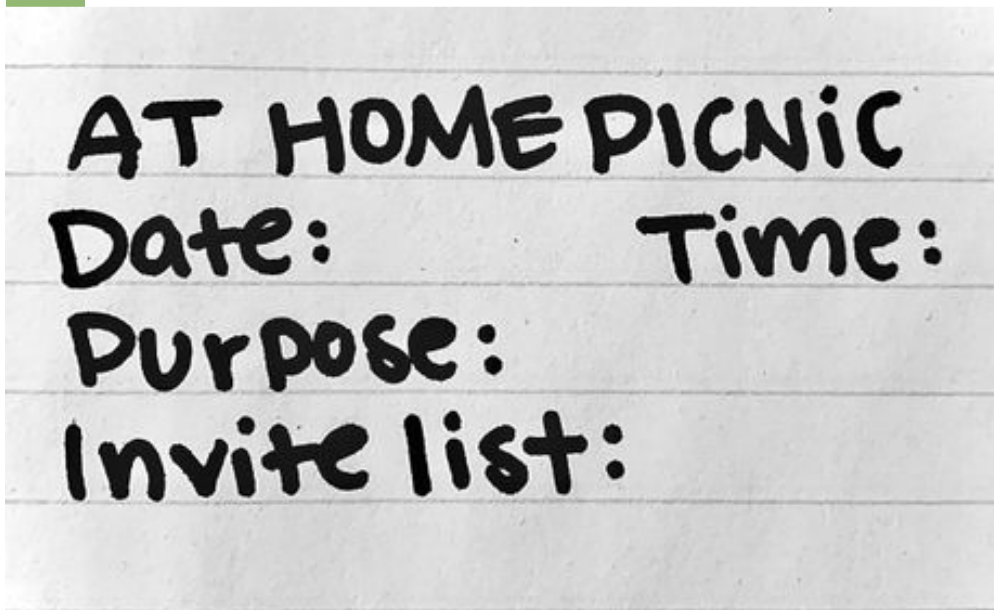 AT HOME PICNiC
Date: Time:
Purpose:
Invite list: